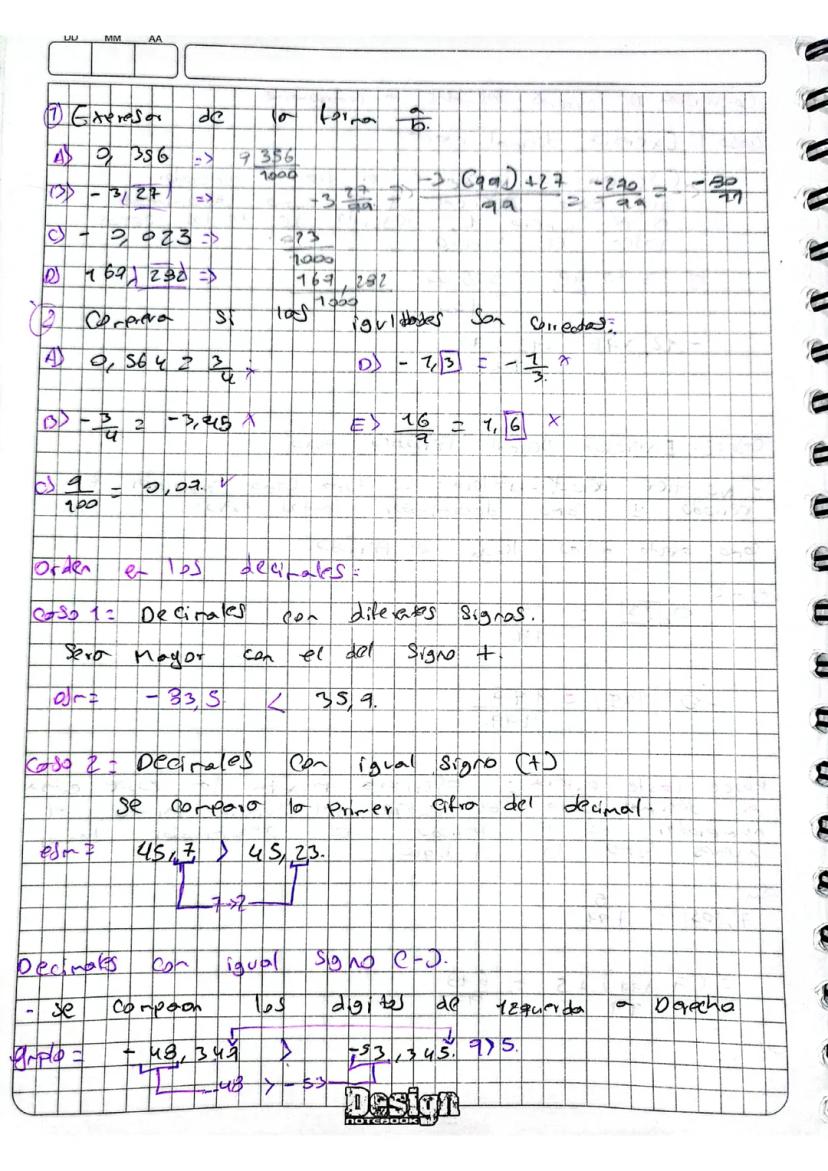 DD MM AA
① Expresar de la forma a/b.
A) 0,356 => 356/1000
B) -3,27 => -3 27/99 => -3(99)+27/99 = -270/99 = -90/11
C) - 0,023 => -23/1000
D) 167,292 => 167,292/1000
② Comprera si las igulddades son correctas:
A) 0,564 = 3/4 x D) - 1,3 = - 1/3. x
B) - 3/4 = -3,45 x E) 16/9 = 1,6 x
C) 9/100 = 0,09. ✓
Orden en los decimales:
Caso 1: Decimales con diferentes signos.
Sera Mayor con el del signo +.
ejm: - 33,5 < 35,9.
Caso 2: Decimales con igual signo (+)
se compara la primer cifra del decimal.
ejm: 45,7 > 45,23.
7>2
Decimales con igual signo (-).
- se comparan los digitos de izquerda a Derecha
Ejmplo = - 48,349 > -53,345. 9>5.
-48 > -53
Design
NOTEBOOK